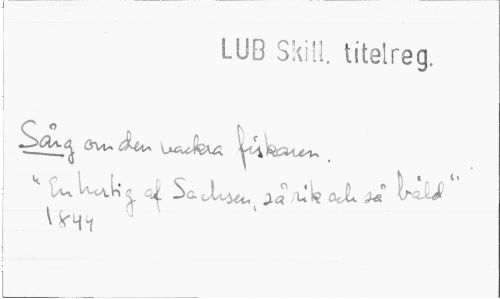 LUB Skill. titelreg.
Sång om den vackra fiskaren.
"En hertig af Sachsen, så rik och så båld"
1844